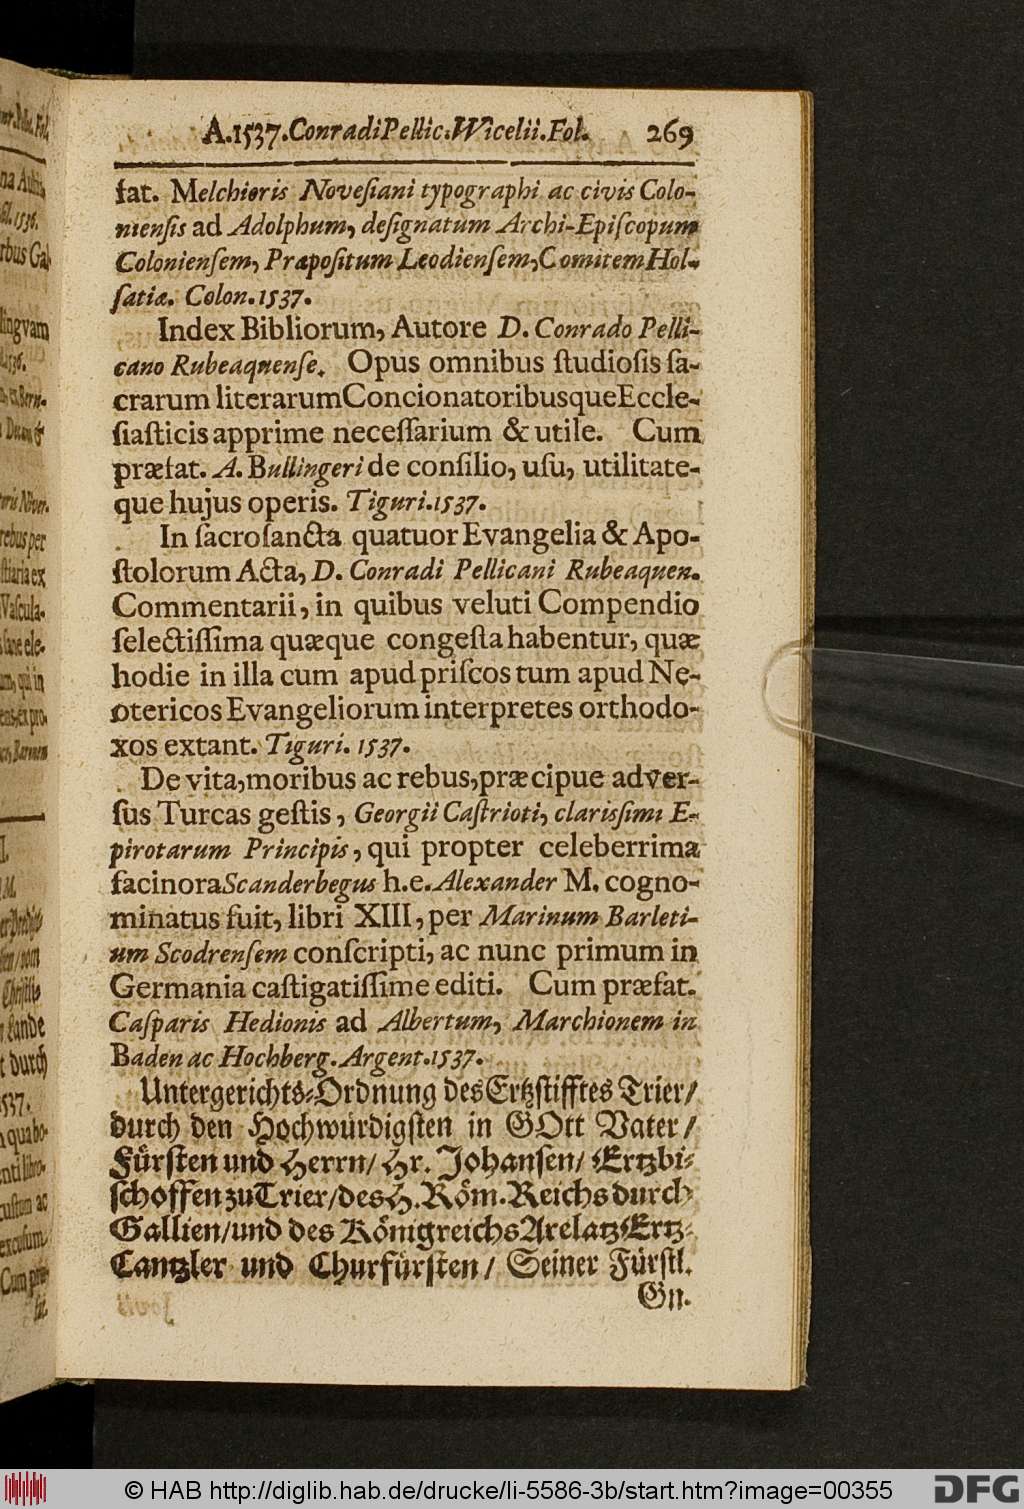 A.1537.Conradi Pellic.Wicelii.Fol. 269
fat. Melchioris Noveſiani typographi ac civis Colo-
nienſis ad Adolphum, deſignatum Archi-Epiſcopum
Colonienſem, Præpoſitum Leodienſem, Comitem Hol-
ſatiæ. Colon. 1537.
Index Bibliorum, Autore D. Conrado Pelli-
cano Rubeaquenſe. Opus omnibus ſtudioſis ſa-
crarum literarum Concionatoribusque Eccle-
ſiaſticis apprime neceſſarium & utile. Cum
præfat. A. Bullingeri de conſilio, uſu, utilitate-
que hujus operis. Tiguri. 1537.
In ſacroſancta quatuor Evangelia & Apo-
ſtolorum Acta, D. Conradi Pellicani Rubeaquen.
Commentarii, in quibus veluti Compendio
ſelectiſſima quæque congeſta habentur, quæ
hodie in illa cum apud priſcos tum apud Ne-
otericos Evangeliorum interpretes orthodo-
xos extant. Tiguri. 1537.
De vita, moribus ac rebus, præcipue adver-
ſus Turcas geſtis, Georgii Caſtrioti, clariſſimi E-
pirotarum Principis, qui propter celeberrima
facinora Scanderbegus h.e. Alexander M. cogno-
minatus fuit, libri XIII, per Marinum Barleti-
um Scodrenſem conſcripti, ac nunc primum in
Germania caſtigatiſſime editi. Cum præfat.
Caſparis Hedionis ad Albertum, Marchionem in
Baden ac Hochberg. Argent. 1537.
Untergerichts-Ordnung des Ertzſtifftes Trier/
durch den Hochwürdigſten in GOtt Vater/
Fürſten und Herrn/ Hr. Johanſen/ Ertzbi-
ſchoffen zu Trier/ des H. Röm. Reichs durch
Gallien/ und des Königreichs Arelatz Ertz-
Cantzler und Churfürſten/ Seiner Fürſtl.
Gn.
© HAB http://diglib.hab.de/drucke/li-5586-3b/start.htm?image=00355
DFG